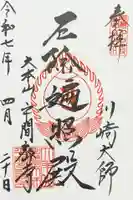 奉拝
川崎大師
厄除遍照殿
大本山平間寺
令和七年四月二十日